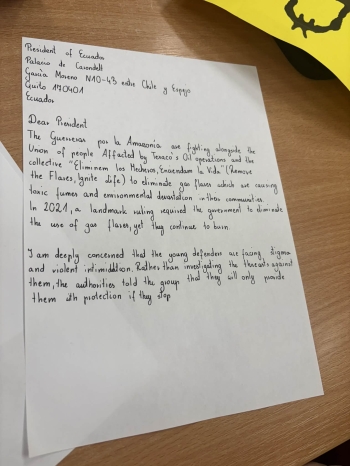 President of Ecuador
Palacio de Carondelt
García Moreno N10-43 entre Chile y Espejo
Quito 170401
Ecuador
Dear President
The Guerreras por la Amazonía are fighting alongside the
Union of people Affected by Texaco's Oil operations and the
collective "Eliminem los Mecheros, Encendam la Vida" (Remove
the Flares, Ignite life) to eliminate gas flares which are causing
toxic fumes and environmental devastation in their communities.
In 2021, a landmark ruling required the government to eliminate
the use of gas flares, yet they continue to burn.
I am deeply concerned that the young defenders are facing stigma
and violent intimidation. Rather than investigating the threats against
them, the authorities told the group that they will only provide
them with protection if they stop